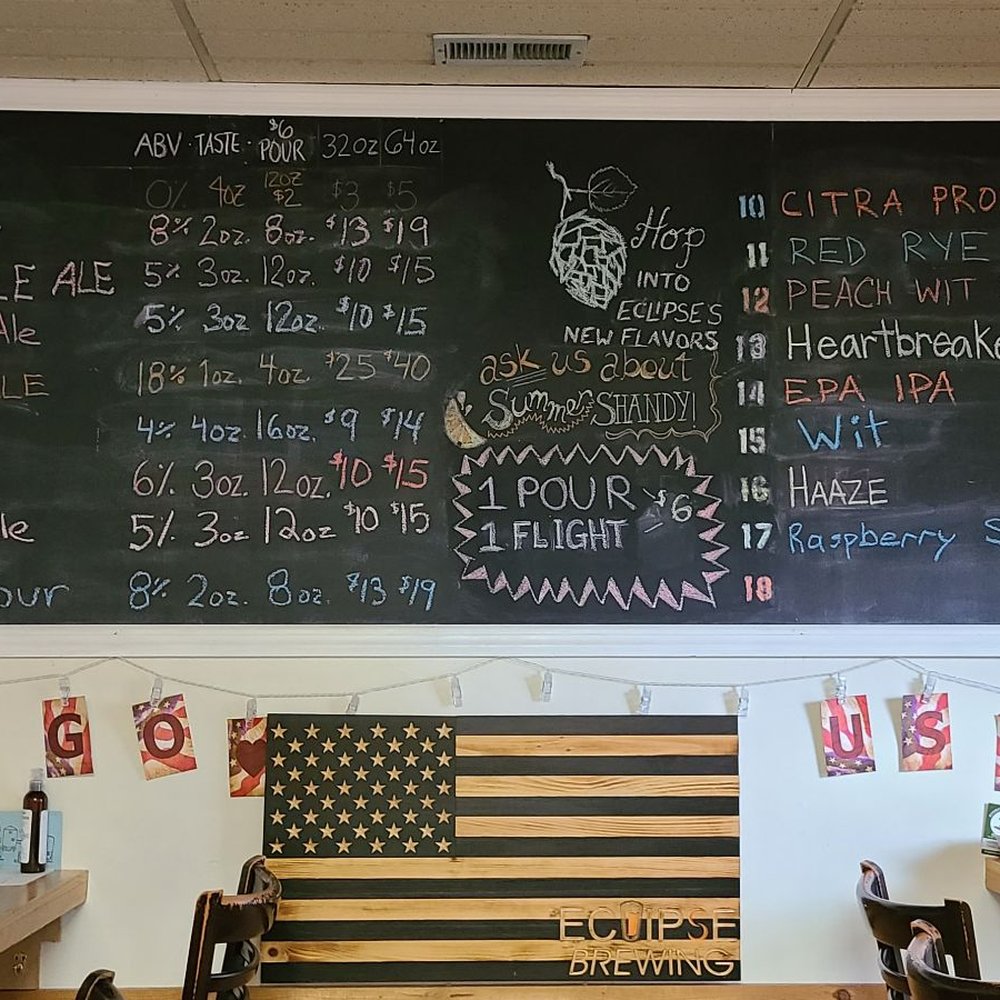 ABV · TASTE · $6 POUR 32oz 64oz
0% 4oz 12oz $2 $3 $5
8% 2oz. 8oz. $13 $19
LE ALE 5% 3oz. 12oz. $10 $15
Ale 5% 3oz 12oz. $10 $15
LE 18% 1oz. 4oz. $25 $40
4% 4oz. 16oz. $9 $14
6% 3oz. 12oz. $10 $15
le 5% 3oz 12oz $10 $15
our 8% 2oz. 8oz. $13 $19
Hop
INTO
ECLIPSE'S
NEW FLAVORS
ask us about
Summer SHANDY!
1 POUR
1 FLIGHT
$6
10 CITRA PRO
11 RED RYE
12 PEACH WIT
13 Heartbreake
14 EPA IPA
15 Wit
16 HAAZE
17 Raspberry S
18
G O U S
ECLIPSE
BREWING